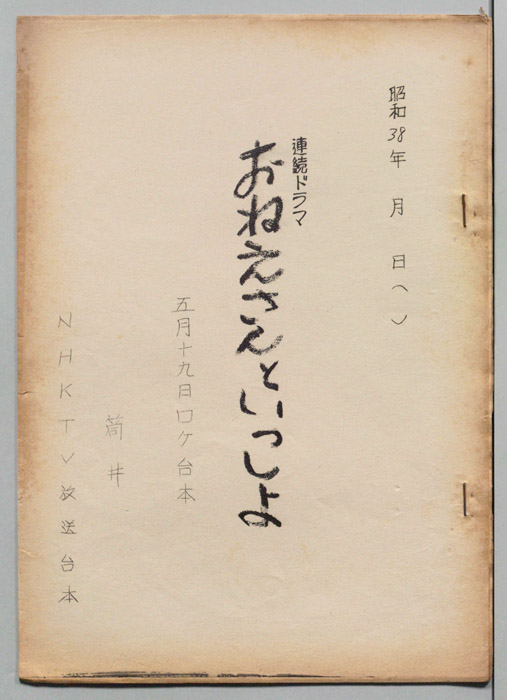 昭和38年 月 日( )
連続ドラマ
おねえさんといっしょ
五月十九日ロケ台本
筒井
NHKTV放送台本